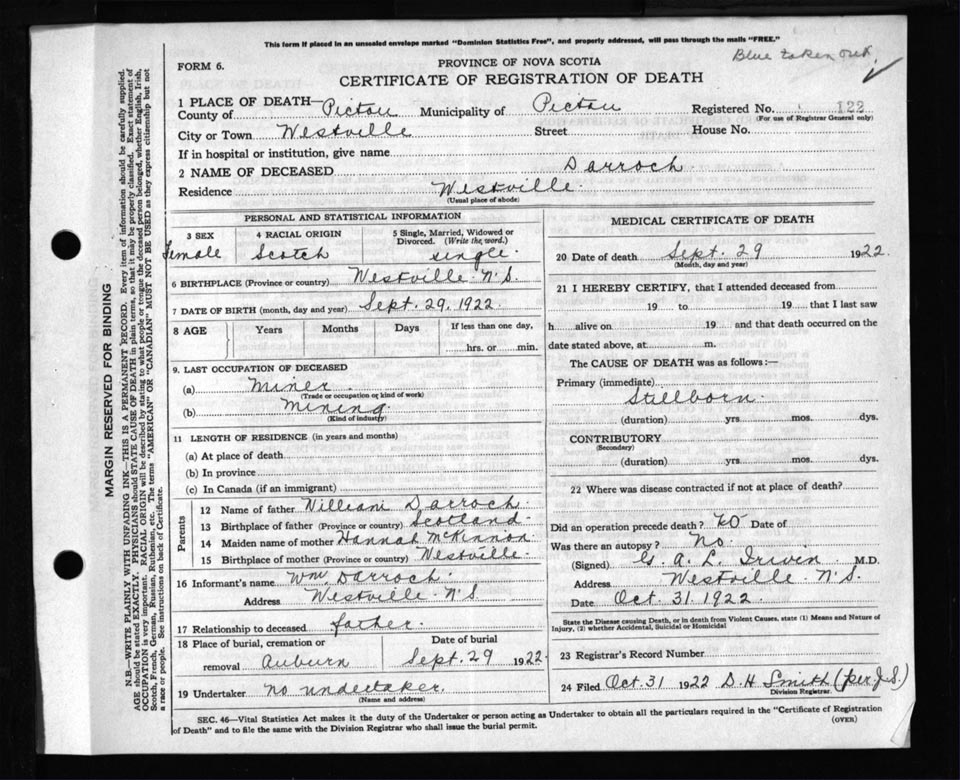 This form if placed in an unsealed envelope marked "Dominion Statistics Free", and properly addressed, will pass through the mails "FREE."
Blue taken out ✓
FORM 6.
PROVINCE OF NOVA SCOTIA
CERTIFICATE OF REGISTRATION OF DEATH
1 PLACE OF DEATH—
County of Pictou Municipality of Pictou Registered No. 122
(For use of Registrar General only)
City or Town Westville Street House No.
If in hospital or institution, give name
2 NAME OF DECEASED Darroch
Residence Westville.
(Usual place of abode)
PERSONAL AND STATISTICAL INFORMATION
3 SEX
Female
4 RACIAL ORIGIN
Scotch
5 Single, Married, Widowed or
Divorced. (Write the word.)
single.
6 BIRTHPLACE (Province or country) Westville N.S.
7 DATE OF BIRTH (month, day and year) Sept. 29. 1922.
8 AGE Years Months Days If less than one day,
hrs. or min.
9. LAST OCCUPATION OF DECEASED
(a) Miner.
(Trade or occupation or kind of work)
(b) Mining
(Kind of industry)
11 LENGTH OF RESIDENCE (in years and months)
(a) At place of death
(b) In province
(c) In Canada (if an immigrant)
Parents
12 Name of father William Darroch.
13 Birthplace of father (Province or country) Scotland
14 Maiden name of mother Hannah McKinnon
15 Birthplace of mother (Province or country) Westville.
16 Informant's name Wm Darroch.
Address Westville. N.S.
17 Relationship to deceased father.
18 Place of burial, cremation or
removal Auburn
Date of burial
Sept. 29 1922.
19 Undertaker no undertaker.
(Name and address)
MEDICAL CERTIFICATE OF DEATH
20 Date of death Sept. 29 1922.
(Month, day and year)
21 I HEREBY CERTIFY, that I attended deceased from
19 to 19 that I last saw
h alive on 19 and that death occurred on the
date stated above, at m.
The CAUSE OF DEATH was as follows:—
Primary (immediate)
Stillborn.
(duration) yrs mos. dys.
CONTRIBUTORY
(Secondary)
(duration) yrs mos. dys.
22 Where was disease contracted if not at place of death?
Did an operation precede death? No Date of
Was there an autopsy? No.
(Signed) G. A. L. Irwin M.D.
Address Westville N.S.
Date Oct. 31. 1922.
State the Disease causing Death, or in death from Violent Causes, state (1) Means and Nature of
Injury, (2) whether Accidental, Suicidal or Homicidal
23 Registrar's Record Number
24 Filed Oct. 31 1922 D. H. Smith (per J.S.)
Division Registrar.
SEC. 46—Vital Statistics Act makes it the duty of the Undertaker or person acting as Undertaker to obtain all the particulars required in the "Certificate of Registration
of Death" and to file the same with the Division Registrar who shall issue the burial permit.
(OVER)
MARGIN RESERVED FOR BINDING
N.B.—WRITE PLAINLY WITH UNFADING INK—THIS IS A PERMANENT RECORD. Every item of information should be carefully supplied.
AGE should be stated EXACTLY. PHYSICIANS should STATE CAUSE OF DEATH in plain terms, so that it may be properly classified. Exact statement of
OCCUPATION is very important. RACIAL ORIGIN will be described by stating to what people or tongue the deceased person belonged, whether English, Irish,
Scotch, French, German, Russian, Ruthenian, etc. The terms "AMERICAN" OR "CANADIAN" MUST NOT BE USED as they express citizenship but not
a race or people. See instructions on back of Certificate.